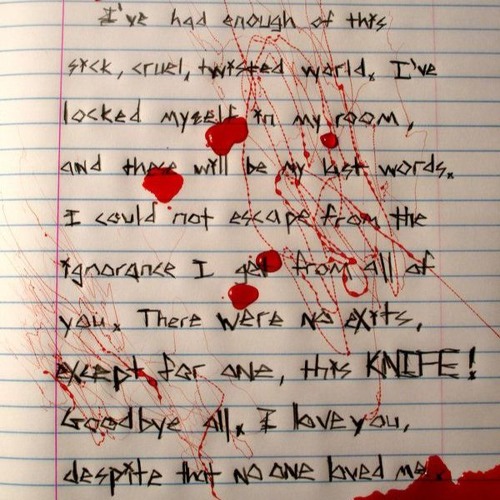 I've had enough of this
sick, cruel, twisted world. I've
locked myself in my room,
and these will be my last words.
I could not escape from the
ignorance I get from all of
you. There were no exits,
except for one, this KNIFE!
Goodbye all. I love you,
despite that no one loved me.